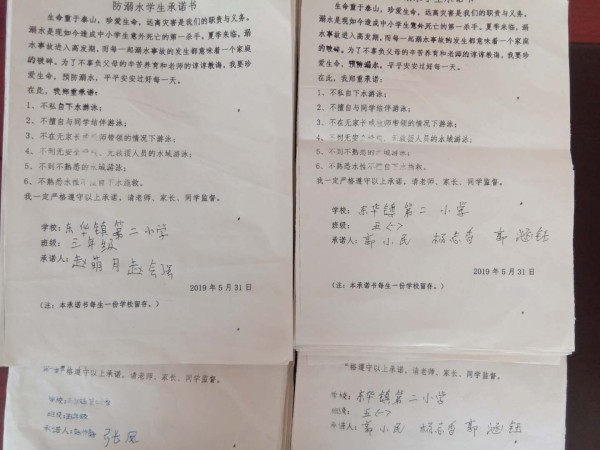 防溺水学生承诺书
生命重于泰山，珍爱生命、远离灾害是我们的职责与义务。
溺水是现如今造成中小学生意外死亡的第一杀手。夏季来临，溺
水事故进入高发期，而每一起溺水事故的发生都意味着一个家庭
的破碎。为了不辜负父母的辛苦养育和老师的谆谆教诲，我要珍
爱生命，预防溺水，平平安安过好每一天。
在此，我郑重承诺：
1、不私自下水游泳；
2、不擅自与同学结伴游泳；
3、不在无家长或教师带领的情况下游泳；
4、不到无安全设施、无救援人员的水域游泳；
5、不到不熟悉的水域游泳；
6、不熟悉水性不擅自下水施救。
我一定严格遵守以上承诺，请老师、家长、同学监督。
学校：东华镇第二小学
班级：三年级
承诺人：赵萌月 赵会强
2019年5月31日
（注：本承诺书每生一份学校留存。）
格遵守以上承诺，请老师、家长、同学监督。
学校：
班级：
承诺人： 张凤
生命重于泰山，珍爱生命、远离灾害是我们的职责与义务。
溺水是现如今造成中小学生意外死亡的第一杀手。夏季来临，溺
水事故进入高发期，而每一起溺水事故的发生都意味着一个家庭
的破碎。为了不辜负父母的辛苦养育和老师的谆谆教诲，我要珍
爱生命，预防溺水，平平安安过好每一天。
在此，我郑重承诺：
1、不私自下水游泳；
2、不擅自与同学结伴游泳；
3、不在无家长或教师带领的情况下游泳；
4、不到无安全设施、无救援人员的水域游泳；
5、不到不熟悉的水域游泳；
6、不熟悉水性不擅自下水施救。
我一定严格遵守以上承诺，请老师、家长、同学监督。
学校：东华镇第二小学
班级：五（一）
承诺人：郭小民 郭涵钰
2019年5月31日
（注：本承诺书每生一份学校留存。）
格遵守以上承诺，请老师、家长、同学监督。
学校：东华镇第二小学
班级：五（一）
承诺人：郭小民 郭涵钰